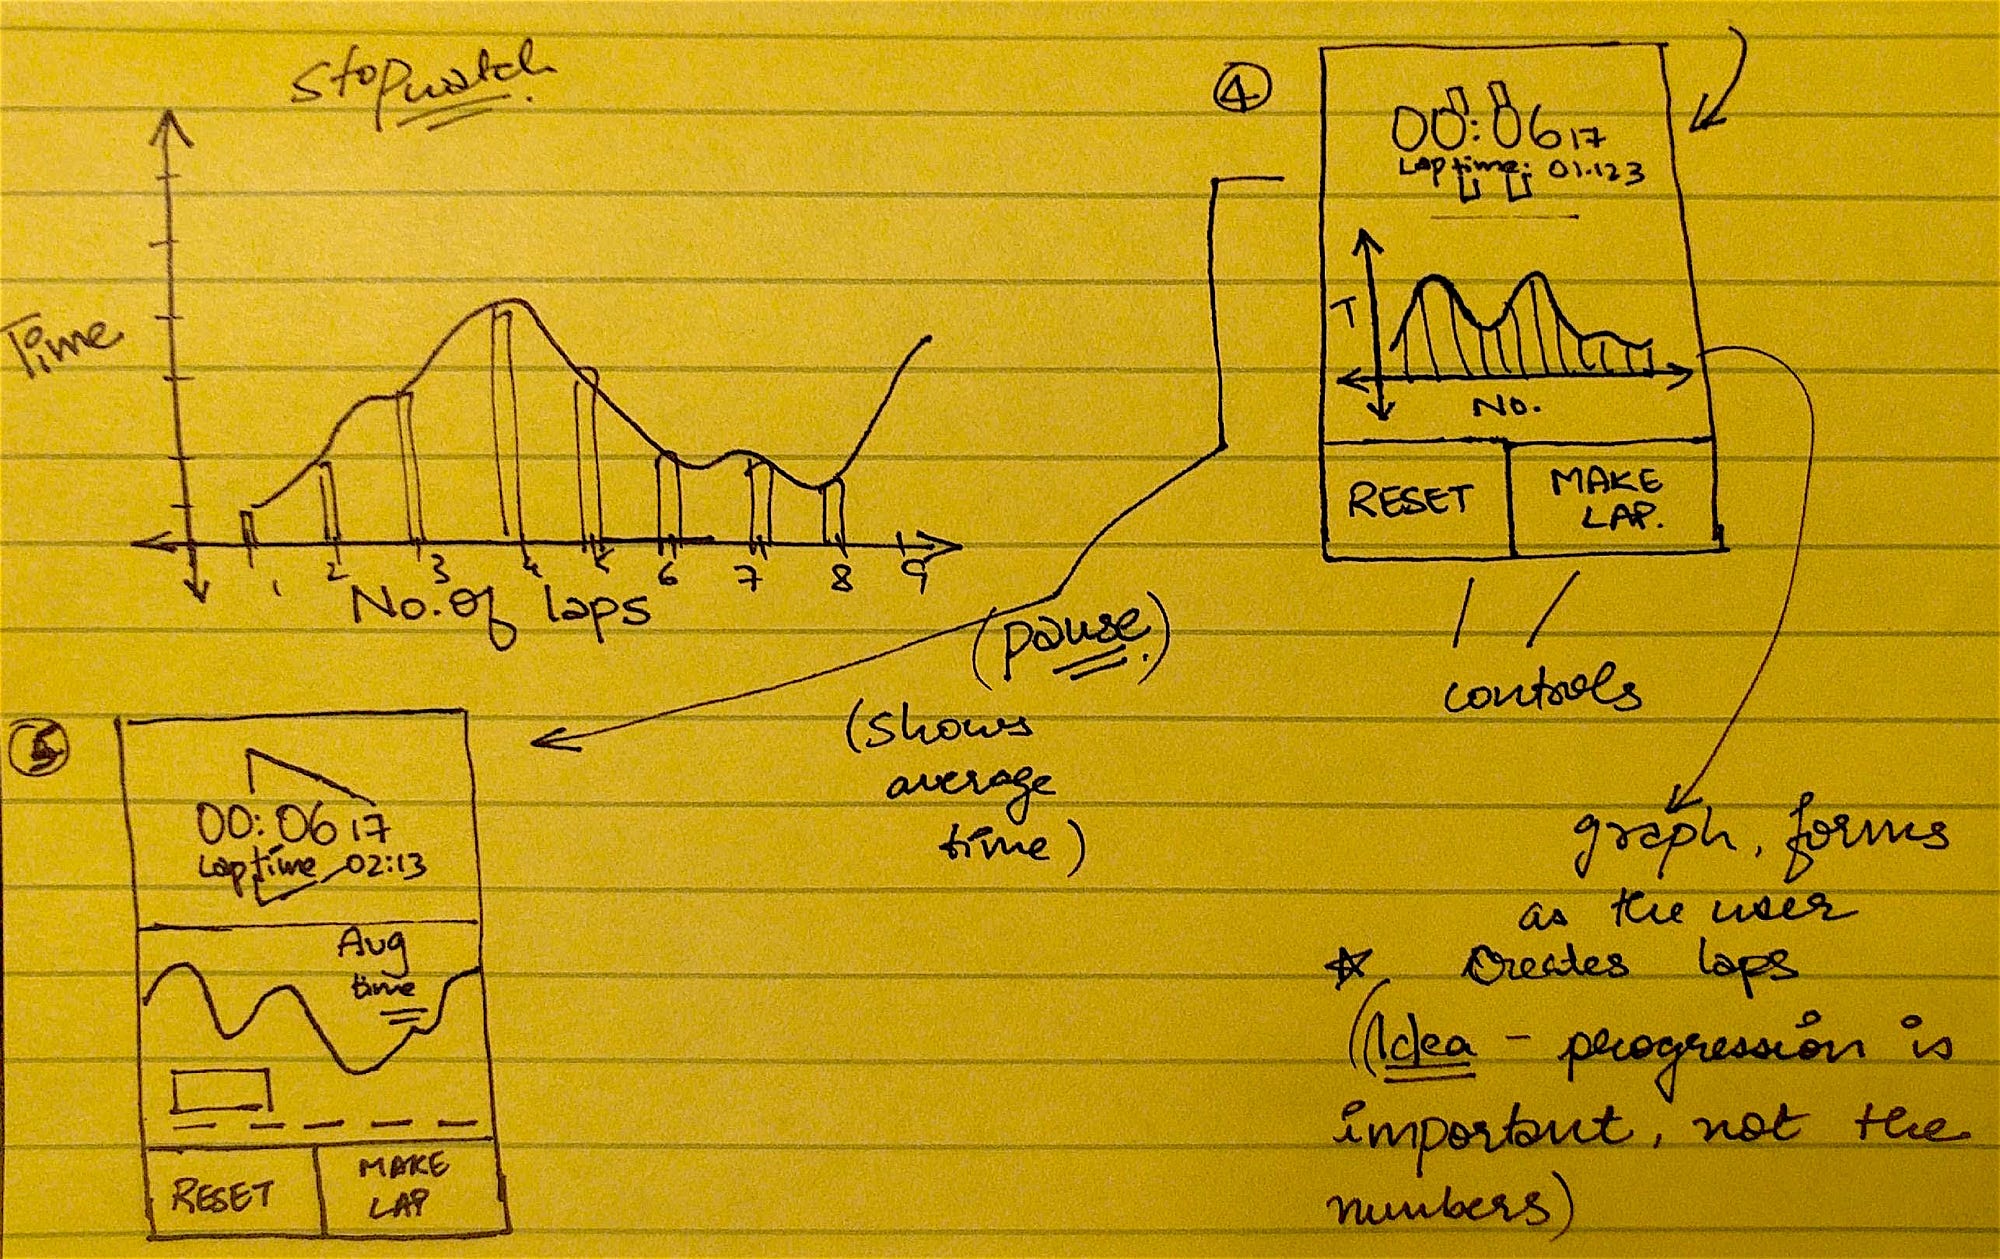 Stopwatch.
Time
1 2 3 4 5 6 7 8 9
No. of laps
4
00:06 17
Lap time: 01.123
T
No.
RESET
MAKE
LAP.
controls
(pause.)
(shows
average
time)
graph, forms
as the user
creates laps
(Idea - progression is
important, not the
numbers)
5
00:06 17
Lap time 02:13
Avg
time
RESET
MAKE
LAP